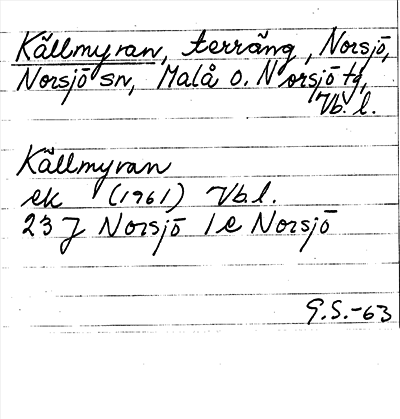 Källmyran, terräng, Norsjö,
Norsjö sn, Malå o. Norsjö tg,
Vb. l.
Källmyran
ek (1961) Vb.l.
23 J Norsjö 1 e Norsjö
G.S.-63